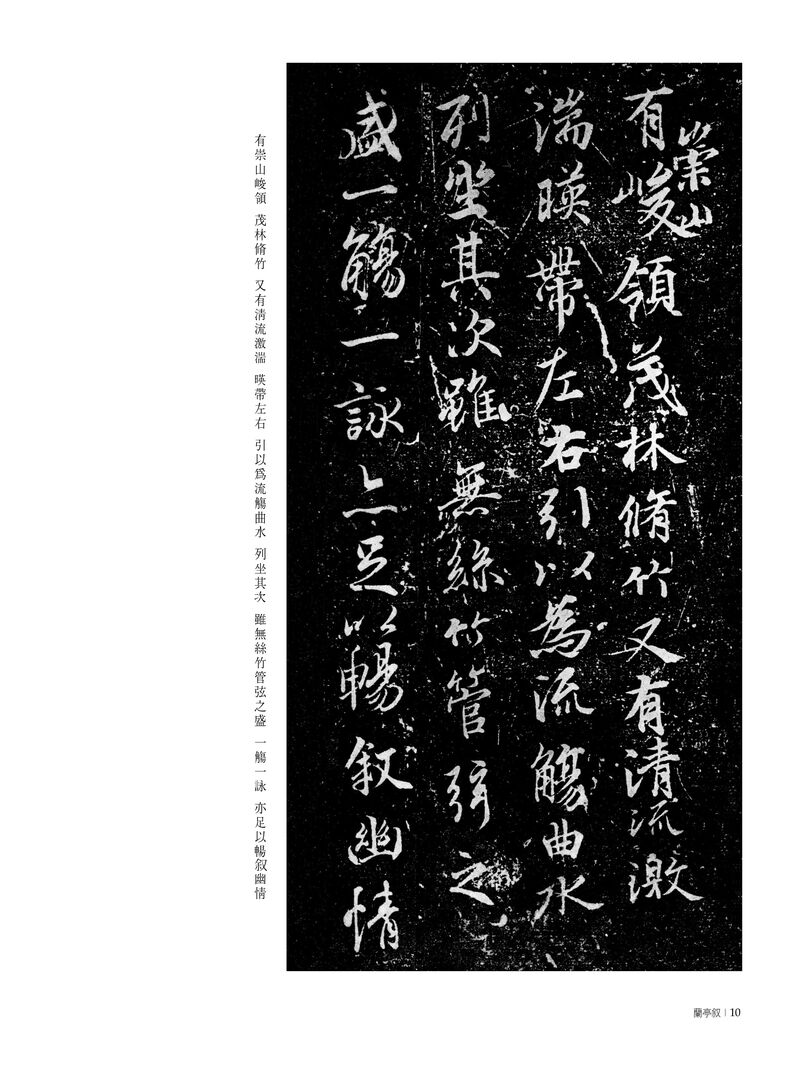 有崇山峻領茂林脩竹又有清流激
湍暎帶左右引以為流觴曲水
列坐其次雖無絲竹管弦之
盛一觴一詠亦足以暢叙幽情
有崇山峻領 茂林脩竹 又有淸流激湍 暎帶左右 引以爲流觴曲水 列坐其次 雖無絲竹管弦之盛 一觴一詠 亦足以暢叙幽情
蘭亭叙 | 10